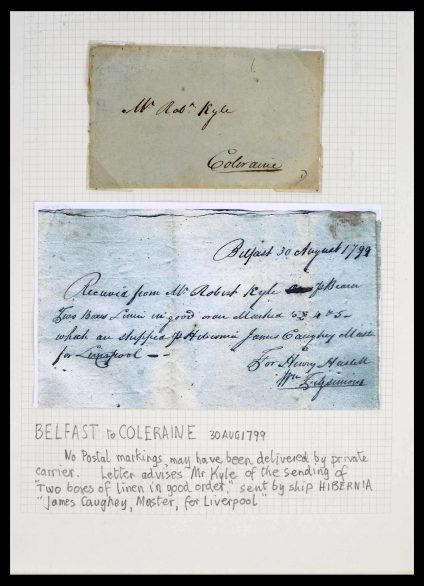 Mr. Robt. Kyle
Coleraine
Belfast 30 August 1799
Received from Mr Robert Kyle p Bearer
Two Boxes Linen in good order Marked 4 & 5 -
which are shipped p Hibernia James Caughey Master
for Liverpool -
For Henry Haslett
Wm Fitzsimons
BELFAST to COLERAINE 30 AUG 1799
No Postal markings, may have been delivered by private
carrier. Letter advises Mr. Kyle of the sending of
"Two boxes of linen in good order," sent by ship HIBERNIA
"James Caughey, Master, for Liverpool"